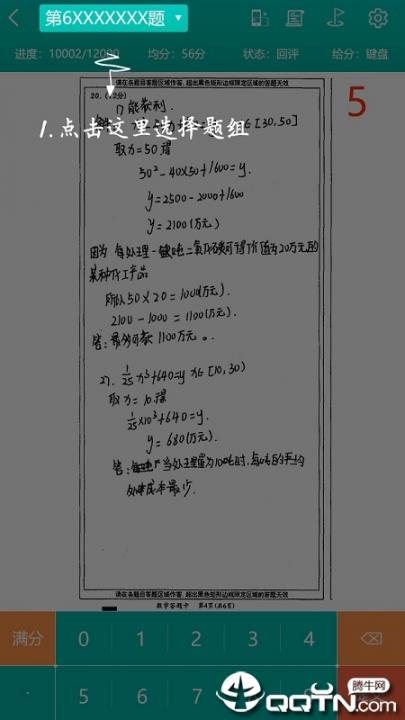 第6XXXXXXX题
进度：10002/12000 均分：56分 状态：回评 给分：键盘
请在各题目答题区域作答，超出黑色矩形边框限定区域的答题无效
20. (12分)
1.点击这里选择题组
5
[30,50]
取x=50得
50²-40×50+1600=y.
y=2500-2000+1600
y=2100(万元)
因为
某种化工产品
所以50×20=1000(万元).
2100-1000=1100(万元).
1100万元。
27. 1/25x³+640=y x∈[10,30)
取x=10得
1/25×10³+640=y.
y=680(万元).
答：
处理成本最少.
请在各题目答题区域作答，超出黑色矩形边框限定区域的答题无效
数学答题卡 第4页(共6页)
满分 0 1 2 3 4
· 5 6 7
腾牛网
QQTN.com